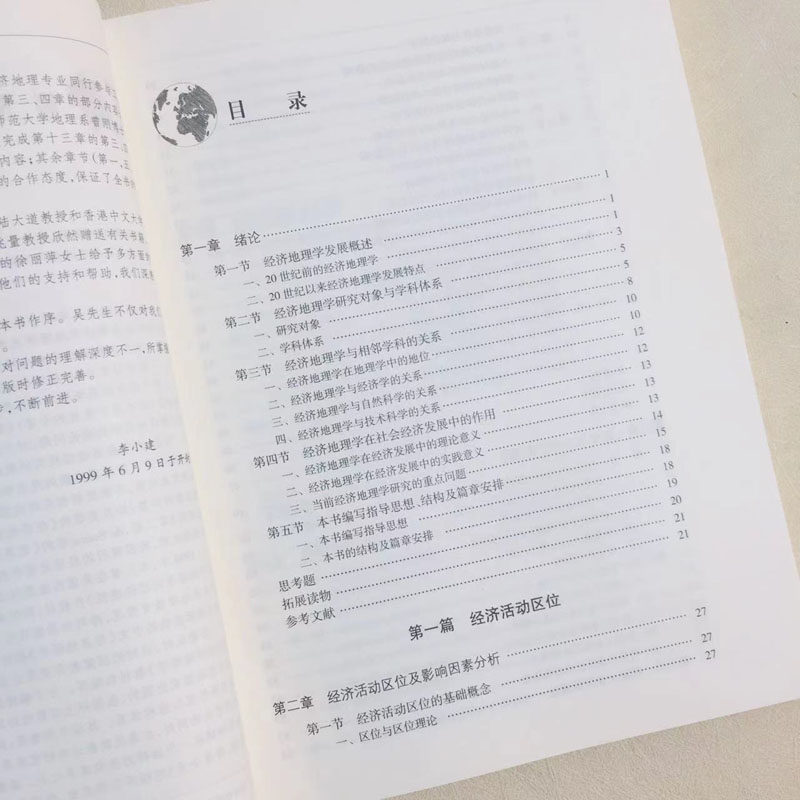 济地理专业同行参与
第三、四章的部分内容
师范大学地理系曾刚博士
完成第十三章的第三、
内容；其余章节(第一、
的合作态度，保证了全书
陆大道教授和香港中文大
量教授欣然赠送有关书籍
的徐丽萍女士给予多方面
他们的支持和帮助，我们深
本书作序。吴先生不仅对我
。
对问题的理解深度不一，所掌
版时修正完善。
，不断前进。
李小建
1999 年 6 月 9 日于开
目 录
第一章 绪论 1
第一节 经济地理学发展概述 1
一、20 世纪前的经济地理学 1
二、20 世纪以来经济地理学发展特点 3
第二节 经济地理学研究对象与学科体系 5
一、研究对象 5
二、学科体系 8
第三节 经济地理学与相邻学科的关系 10
一、经济地理学在地理学中的地位 10
二、经济地理学与经济学的关系 12
三、经济地理学与自然科学的关系 12
四、经济地理学与技术科学的关系 13
第四节 经济地理学在社会经济发展中的作用 13
一、经济地理学在经济发展中的理论意义 13
二、经济地理学在经济发展中的实践意义 14
三、当前经济地理学研究的重点问题 15
第五节 本书编写指导思想、结构及篇章安排 18
一、本书编写指导思想 18
二、本书的结构及篇章安排 19
思考题 20
拓展读物 21
参考文献 21
第一篇 经济活动区位
第二章 经济活动区位及影响因素分析 27
第一节 经济活动区位的基础概念 27
一、区位与区位理论 27